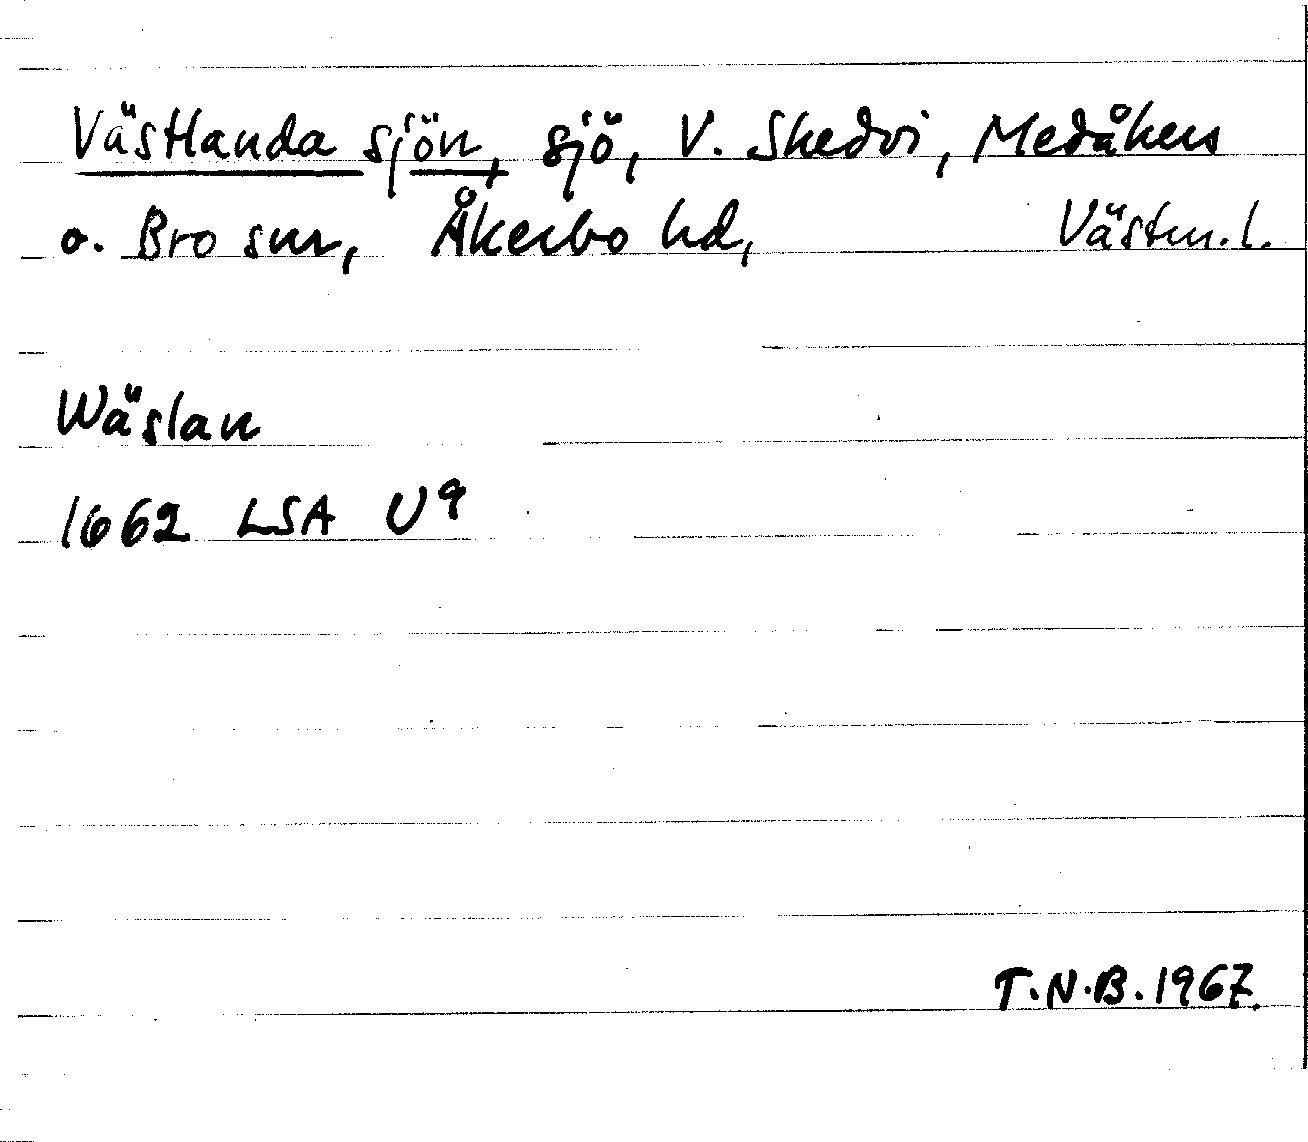 Västlandasjön, sjö, V. Skedvi, Medåkers
o. Bro snr, Åkerbo hd, Västm. l.
Wäslan
1662 LSA U9
T.N.B. 1967.